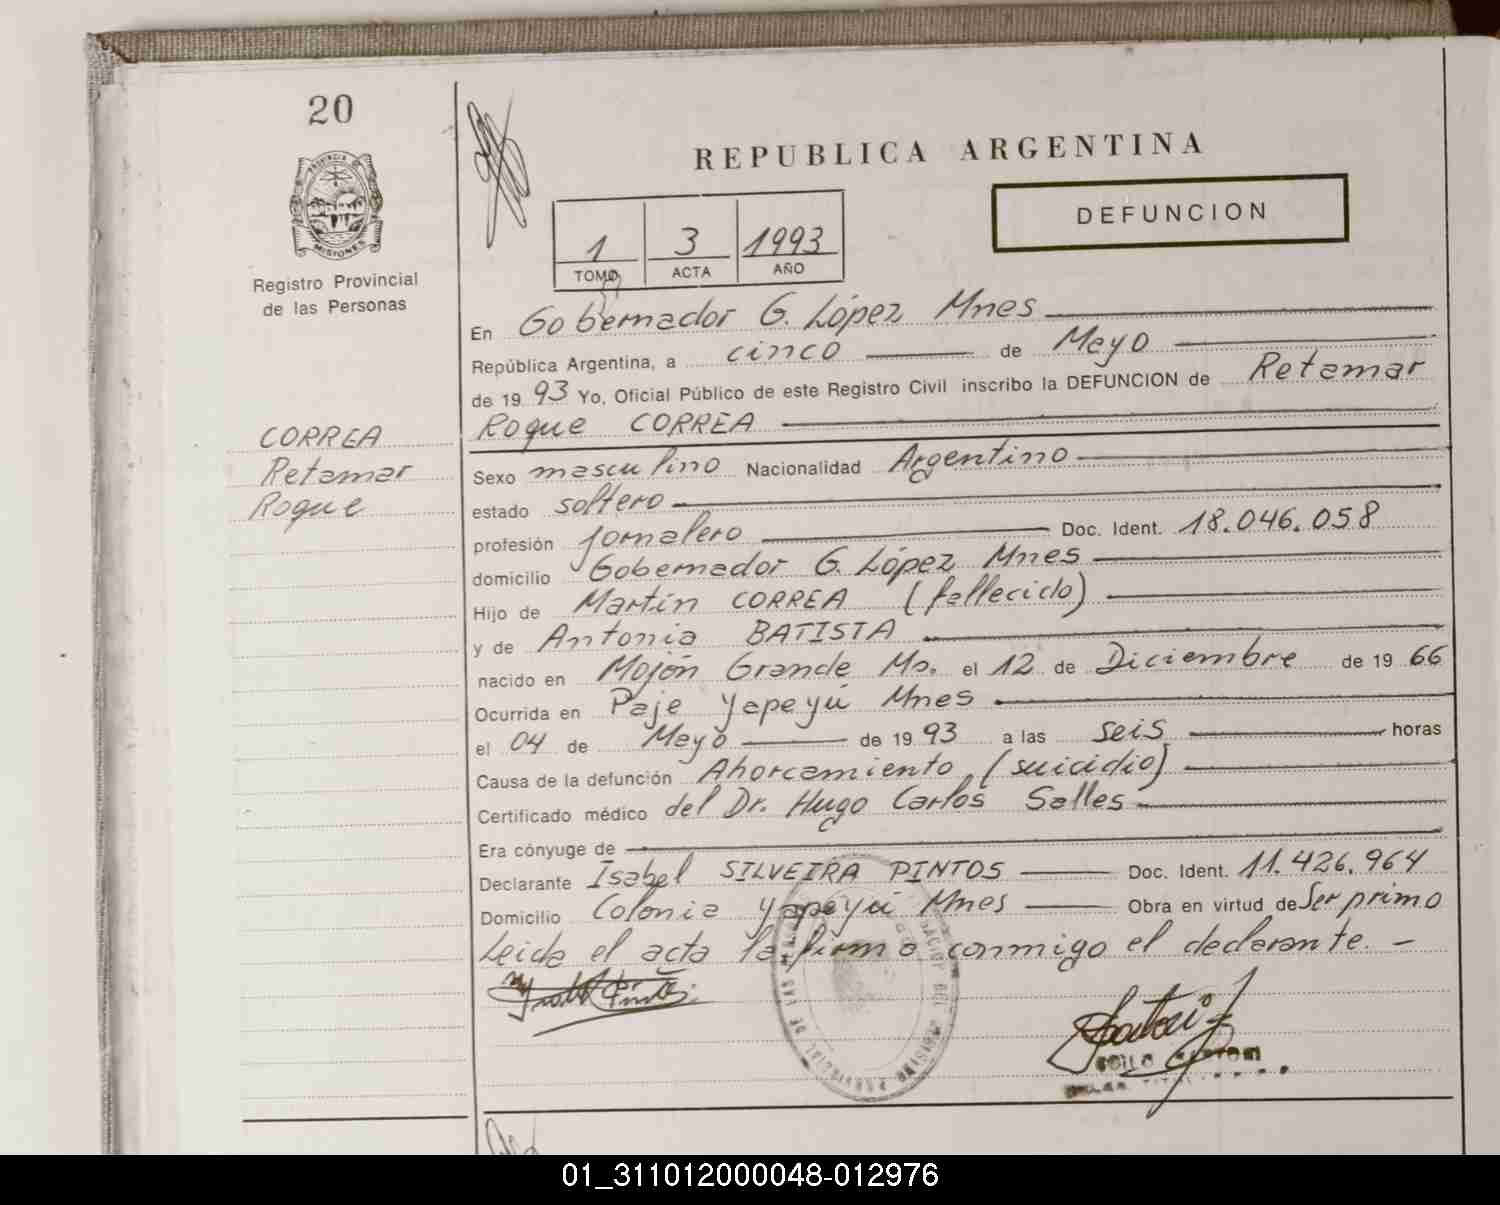 20
PROVINCIA DE
MISIONES
Registro Provincial
de las Personas
REPUBLICA ARGENTINA
DEFUNCION
1 3 1993
TOMO ACTA AÑO
En Gobernador G. López Mnes
República Argentina, a cinco de Mayo
de 19 93 Yo, Oficial Público de este Registro Civil inscribo la DEFUNCION de Retamar
Roque CORREA
CORREA
Retamar
Roque
Sexo masculino Nacionalidad Argentino
estado soltero
profesión Jornalero Doc. Ident. 18.046.058
domicilio Gobernador G. López Mnes
Hijo de Martín CORREA (fallecido)
y de Antonia BATISTA
nacido en Mojón Grande Ms. el 12 de Diciembre de 19 66
Ocurrida en Paje Yapeyú Mnes
el 04 de Mayo de 19 93 a las seis horas
Causa de la defunción Ahorcamiento (suicidio)
Certificado médico del Dr. Hugo Carlos Salles
Era cónyuge de
Declarante Isabel SILVEIRA PINTOS Doc. Ident. 11.426.964
Domicilio Colonia Yapeyú Mnes Obra en virtud de Ser primo
Leida el acta la firma conmigo el declarante. -
01_311012000048-012976